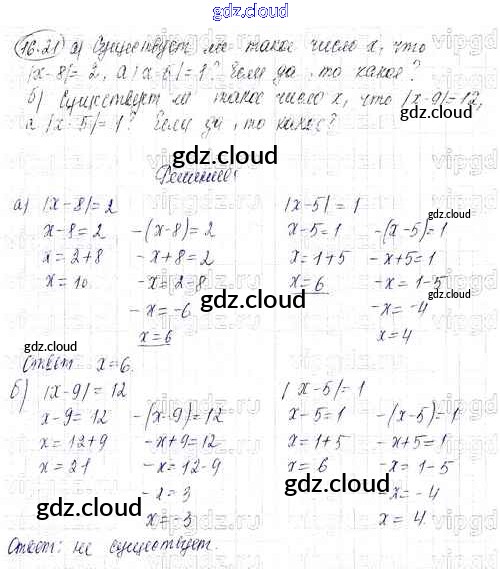 gdz.cloud
16.21 а) Существует ли такое число x, что
|x-8|=2, а |x-5|=1? Если да, то какое?
б) Существует ли такое число x, что |x-9|=12,
а |x-5|=1? Если да, то какое?
gdz.cloud
Решение:
gdz.cloud
а) |x-8|=2 |x-5|=1
x-8=2 -(x-8)=2 x-5=1 -(x-5)=1
x=2+8 -x+8=2 x=1+5 -x+5=1
x=10 -x=2-8 x=6 -x=1-5
gdz.cloud gdz.cloud
-x=-6 -x=-4
x=6 x=4
gdz.cloud
Ответ x=6.
б) |x-9|=12 |x-5|=1
x-9=12 -(x-9)=12 x-5=1 -(x-5)=1
x=12+9 -x+9=12 x=1+5 -x+5=1
x=21 -x=12-9 x=6 -x=1-5
gdz.cloud
-x=3 -x=-4
gdz.cloud gdz.cloud
x=-3 x=4
Ответ: не существует.